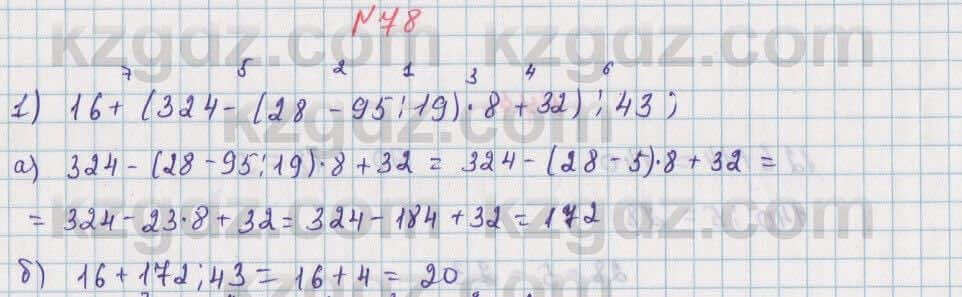 №78
7 5 2 1 3 4 6
1) 16 + (324 - (28 - 95 : 19) · 8 + 32) : 43 ;
а) 324 - (28 - 95 : 19) · 8 + 32 = 324 - (28 - 5) · 8 + 32 =
= 324 - 23 · 8 + 32 = 324 - 184 + 32 = 172
б) 16 + 172 : 43 = 16 + 4 = 20